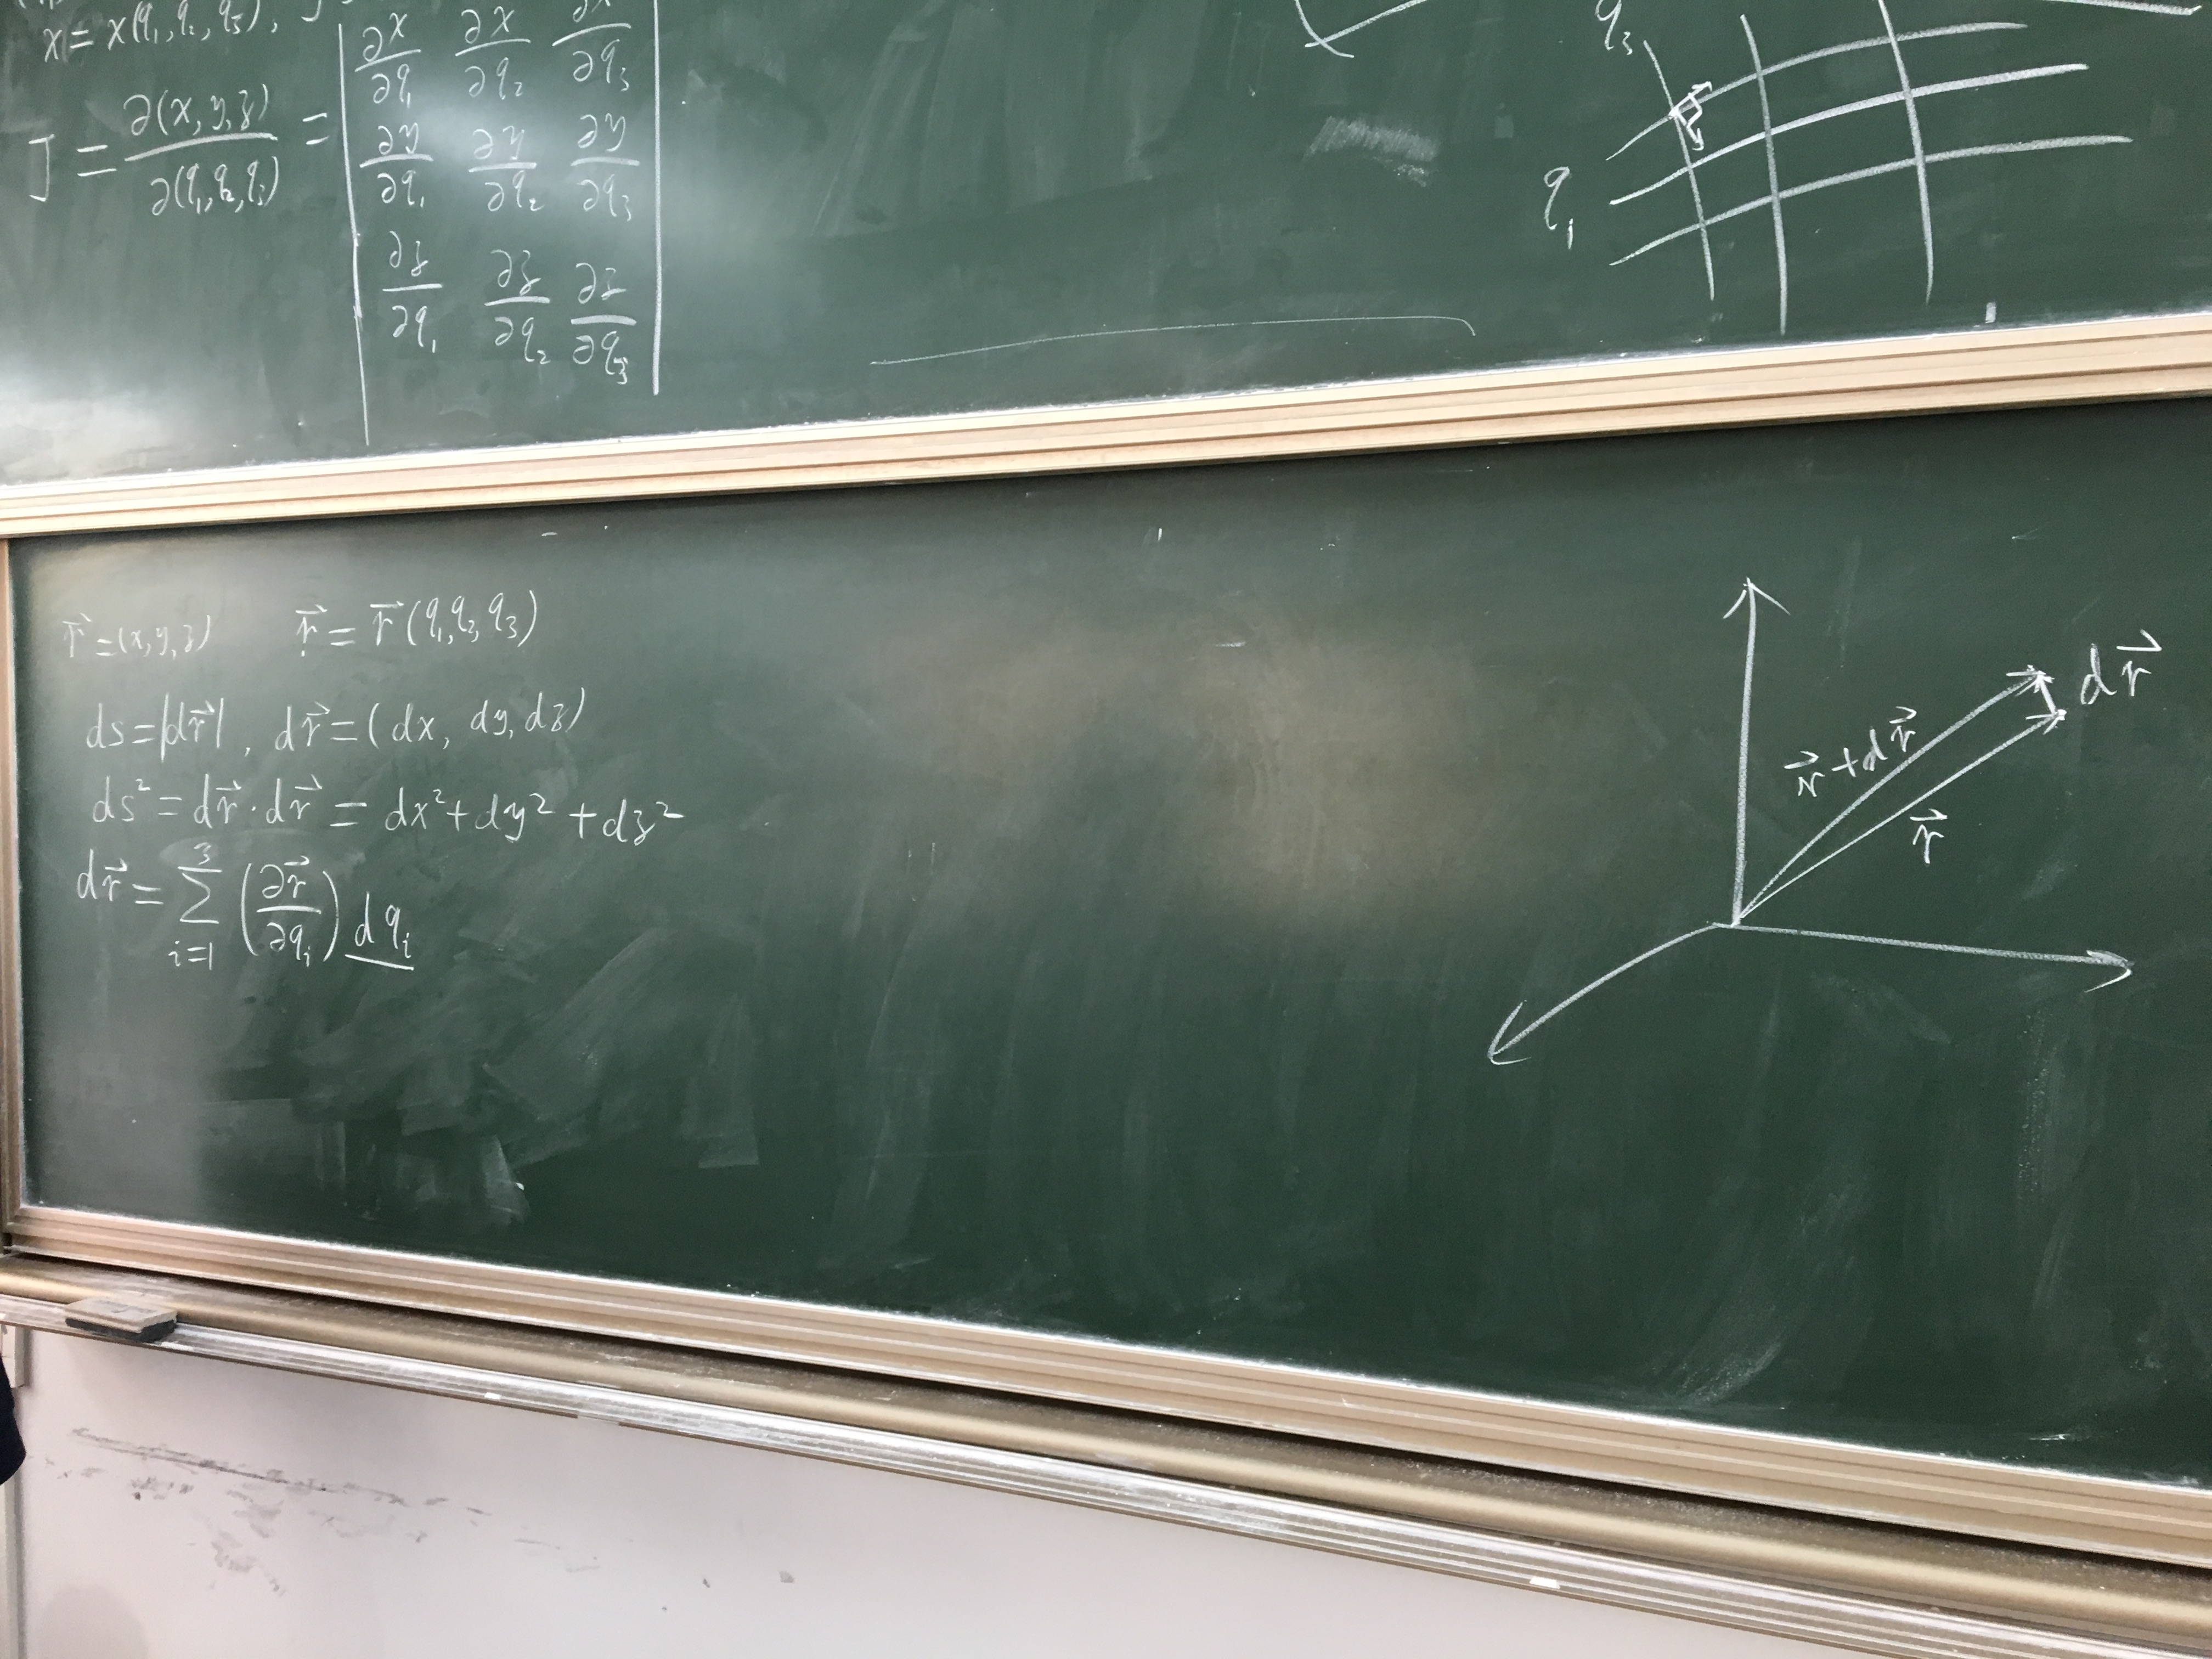 x = x(q₁, q₂, q₃),
J = ∂(x, y, z)/∂(q₁, q₂, q₃) = | ∂x/∂q₁ ∂x/∂q₂ ∂x/∂q₃ |
| ∂y/∂q₁ ∂y/∂q₂ ∂y/∂q₃ |
| ∂z/∂q₁ ∂z/∂q₂ ∂z/∂q₃ |
q₃
q₁
r⃗ = (x, y, z) r⃗ = r⃗(q₁, q₂, q₃)
ds = |dr⃗|, dr⃗ = (dx, dy, dz)
ds² = dr⃗ · dr⃗ = dx² + dy² + dz²
dr⃗ = ∑_{i=1}^{3} (∂r⃗/∂qᵢ) dqᵢ
dr⃗
r⃗ + dr⃗
r⃗